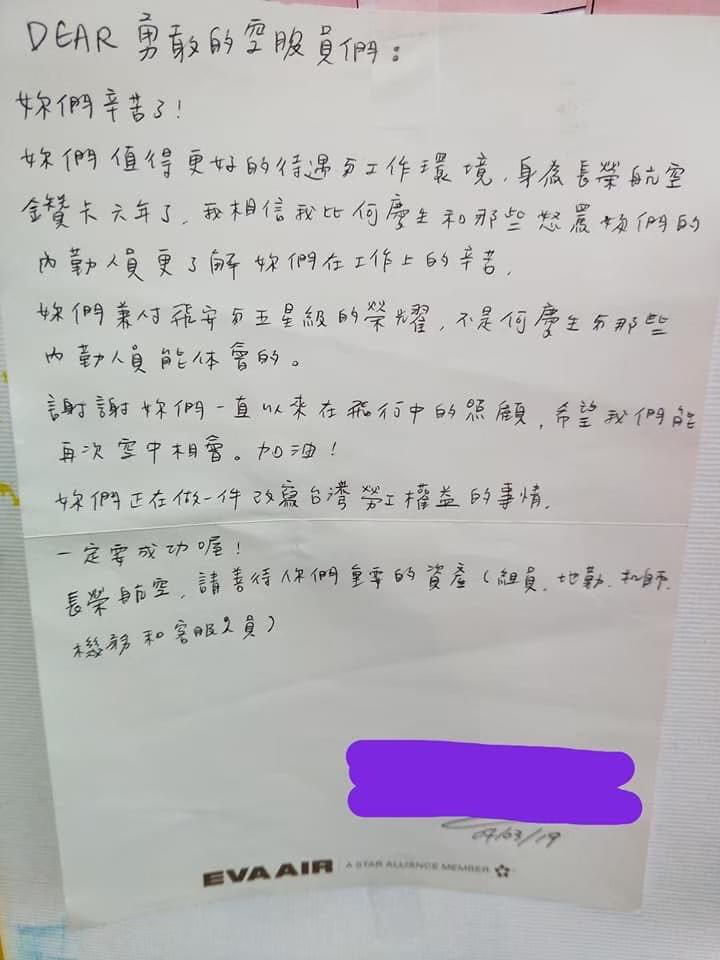 DEAR 勇敢的空服員們：
妳們辛苦了！
妳們值得更好的待遇與工作環境，身為長榮航空
鑽卡六年了，我相信我比何慶生和那些怒罵妳們的
內勤人員更了解妳們在工作上的辛苦，
妳們兼付飛安與五星級的榮耀，不是何慶生與那些
內勤人員能体會的。
謝謝妳們一直以來在飛行中的照顧，希望我們能
再次空中相會。加油！
妳們正在做一件改寫台灣勞工權益的事情，
一定要成功喔！
長榮航空，請善待你們重要的資產（組員、地勤、機師、
機務和客服人員）
04/03/19
EVA AIR A STAR ALLIANCE MEMBER